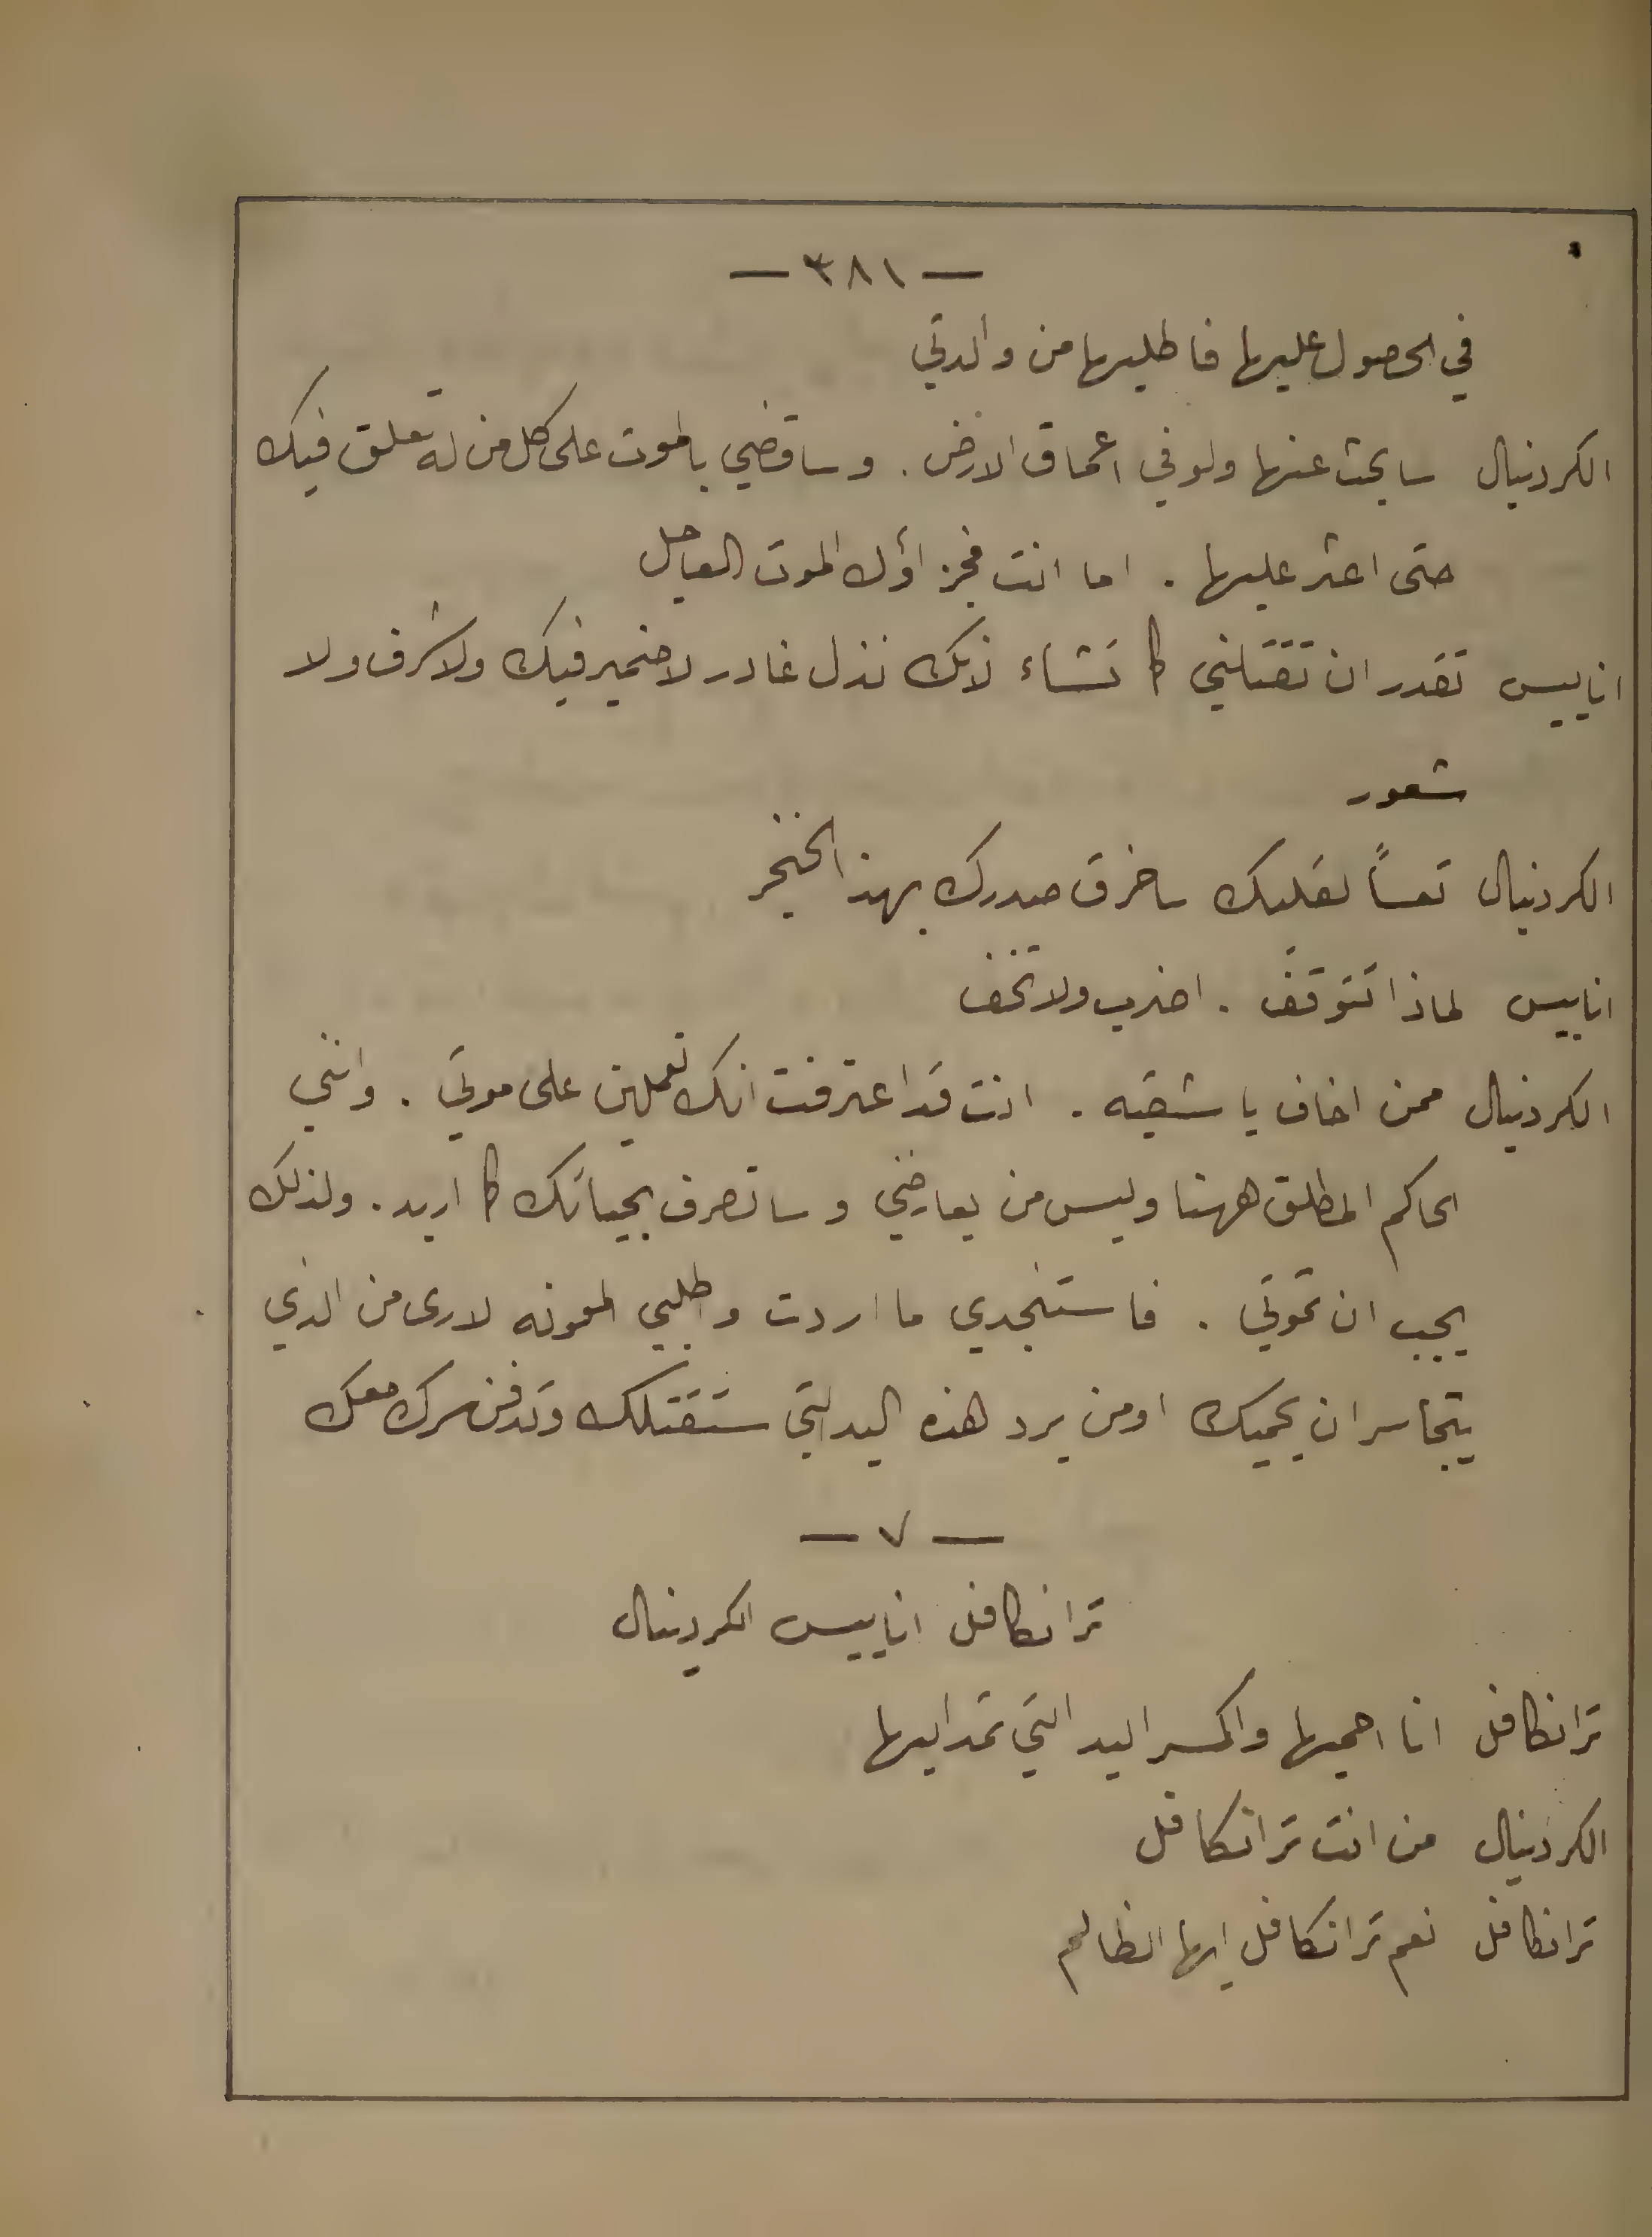 — ٣٨١ —
في الحصول عليها فاطلبها من والدتي
الكردنيال سابحث عنها ولو في اعماق الارض . وساقضي بالموت على كل من له تعلق فيك
حتى اعثر عليها . اما انت فجزاؤك الموت العاجل
اناييس تقدر ان تقتلني كما تشاء لانك نذل غادر لا ضمير فيك ولا شرف ولا
شعور
الكردنيال تعساً لقلبك ساخرق صدرك بهذا الخنجر
اناييس لماذا تتوقف . اضرب ولا تخف
الكردنيال ممن اخاف يا شقيه . انت قد اعترفت انك تعملين على موتي . وانني
الحاكم المطلق ههنا وليس من يعارضني وساتصرف بحياتك كما اريد . ولذلك
يجب ان تموتي . فاستنجدي ما اردت واطلبي المعونه لارى من الذي
يتجاسر ان يحميك او من يرد هذه اليد التي ستقتلك وتدفن سرك معك
— ٧ —
ترانكافل اناييس الكردينال
ترانكافل انا احميها واكسر اليد التي تمد اليها
الكردنيال من انت ترانكافل
ترانكافل نعم ترانكافل ايها الظالم